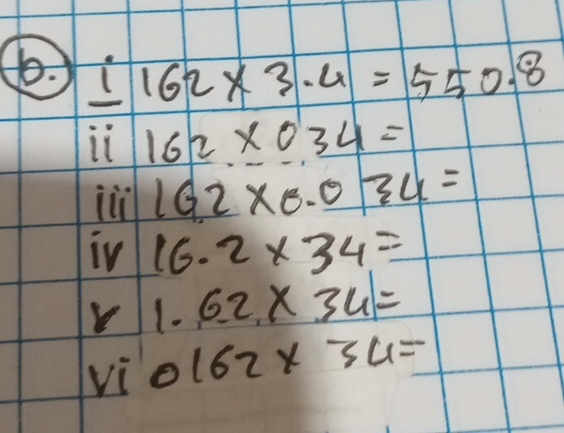 b. i 162 x 3.4 = 550.8
ii 162 x 034 =
iii 162 x 0.034 =
iv 16.2 x 34 =
v 1.62 x 34 =
vi 0162 x 34 =